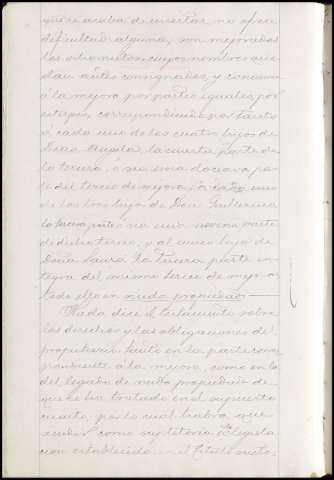 que se acaba de insertar no ofrece
dificultad alguna, son mejorados
los sobrinos nietos, cuyos nombres que
dan antes consignados, y concurren
á la mejora por partes iguales por
estirpes, correspondiendo por tanto
á cada uno de los cuatro hijos de
Doña Amalia, la cuarta parte de
la tercera, ó sea una doceava par
te del tercio de mejora; á cada uno
de los tres hijos de Don Guillermo
la tercera parte ó sea una novena parte
de dicho tercio, y al único hijo de
Doña Laura la tercera parte ín-
tegra del mismo tercio de mejora
todo ello en nuda propiedad.
Nada dice el testamento sobre
los derechos y las obligaciones del
propietario, tanto en la parte corres
pondiente á la mejora, como en la
del legado de nuda propiedad de
que se ha tratado en el supuesto
cuarto, por lo cual habrá que
acudir como supletoria á la legisla
ción establecida en el título sexto,